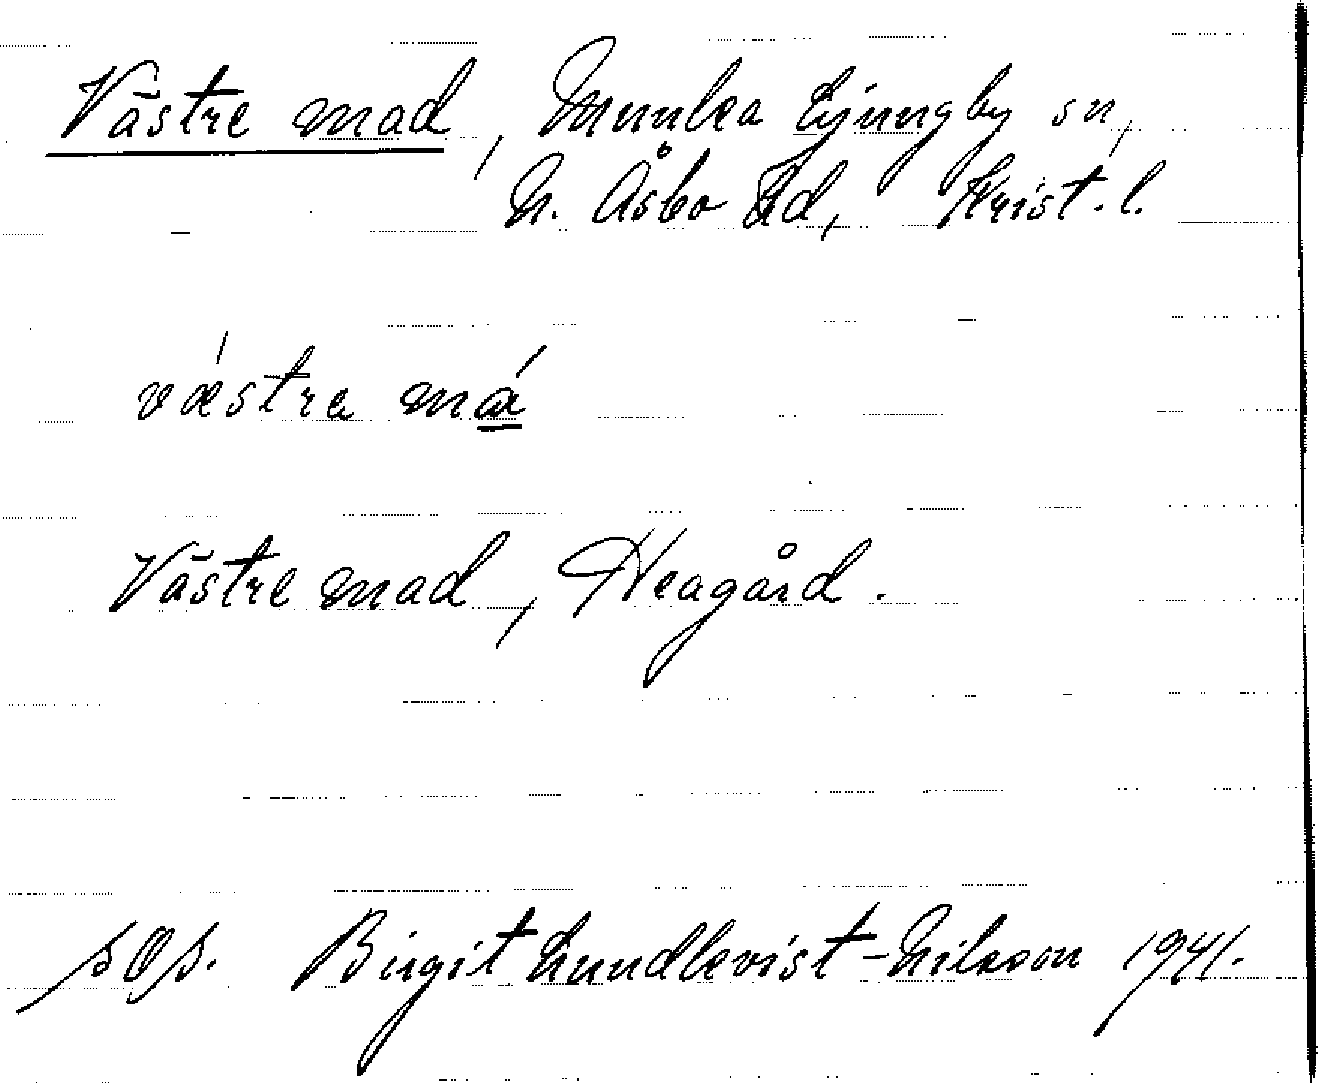 Västre mad, Munka Ljungby sn,
N. Åsbo hd, Krist. l.
væstra má
Västre mad, Heagård.
sOs. Birgit Lundkvist-Nilsson 1941.